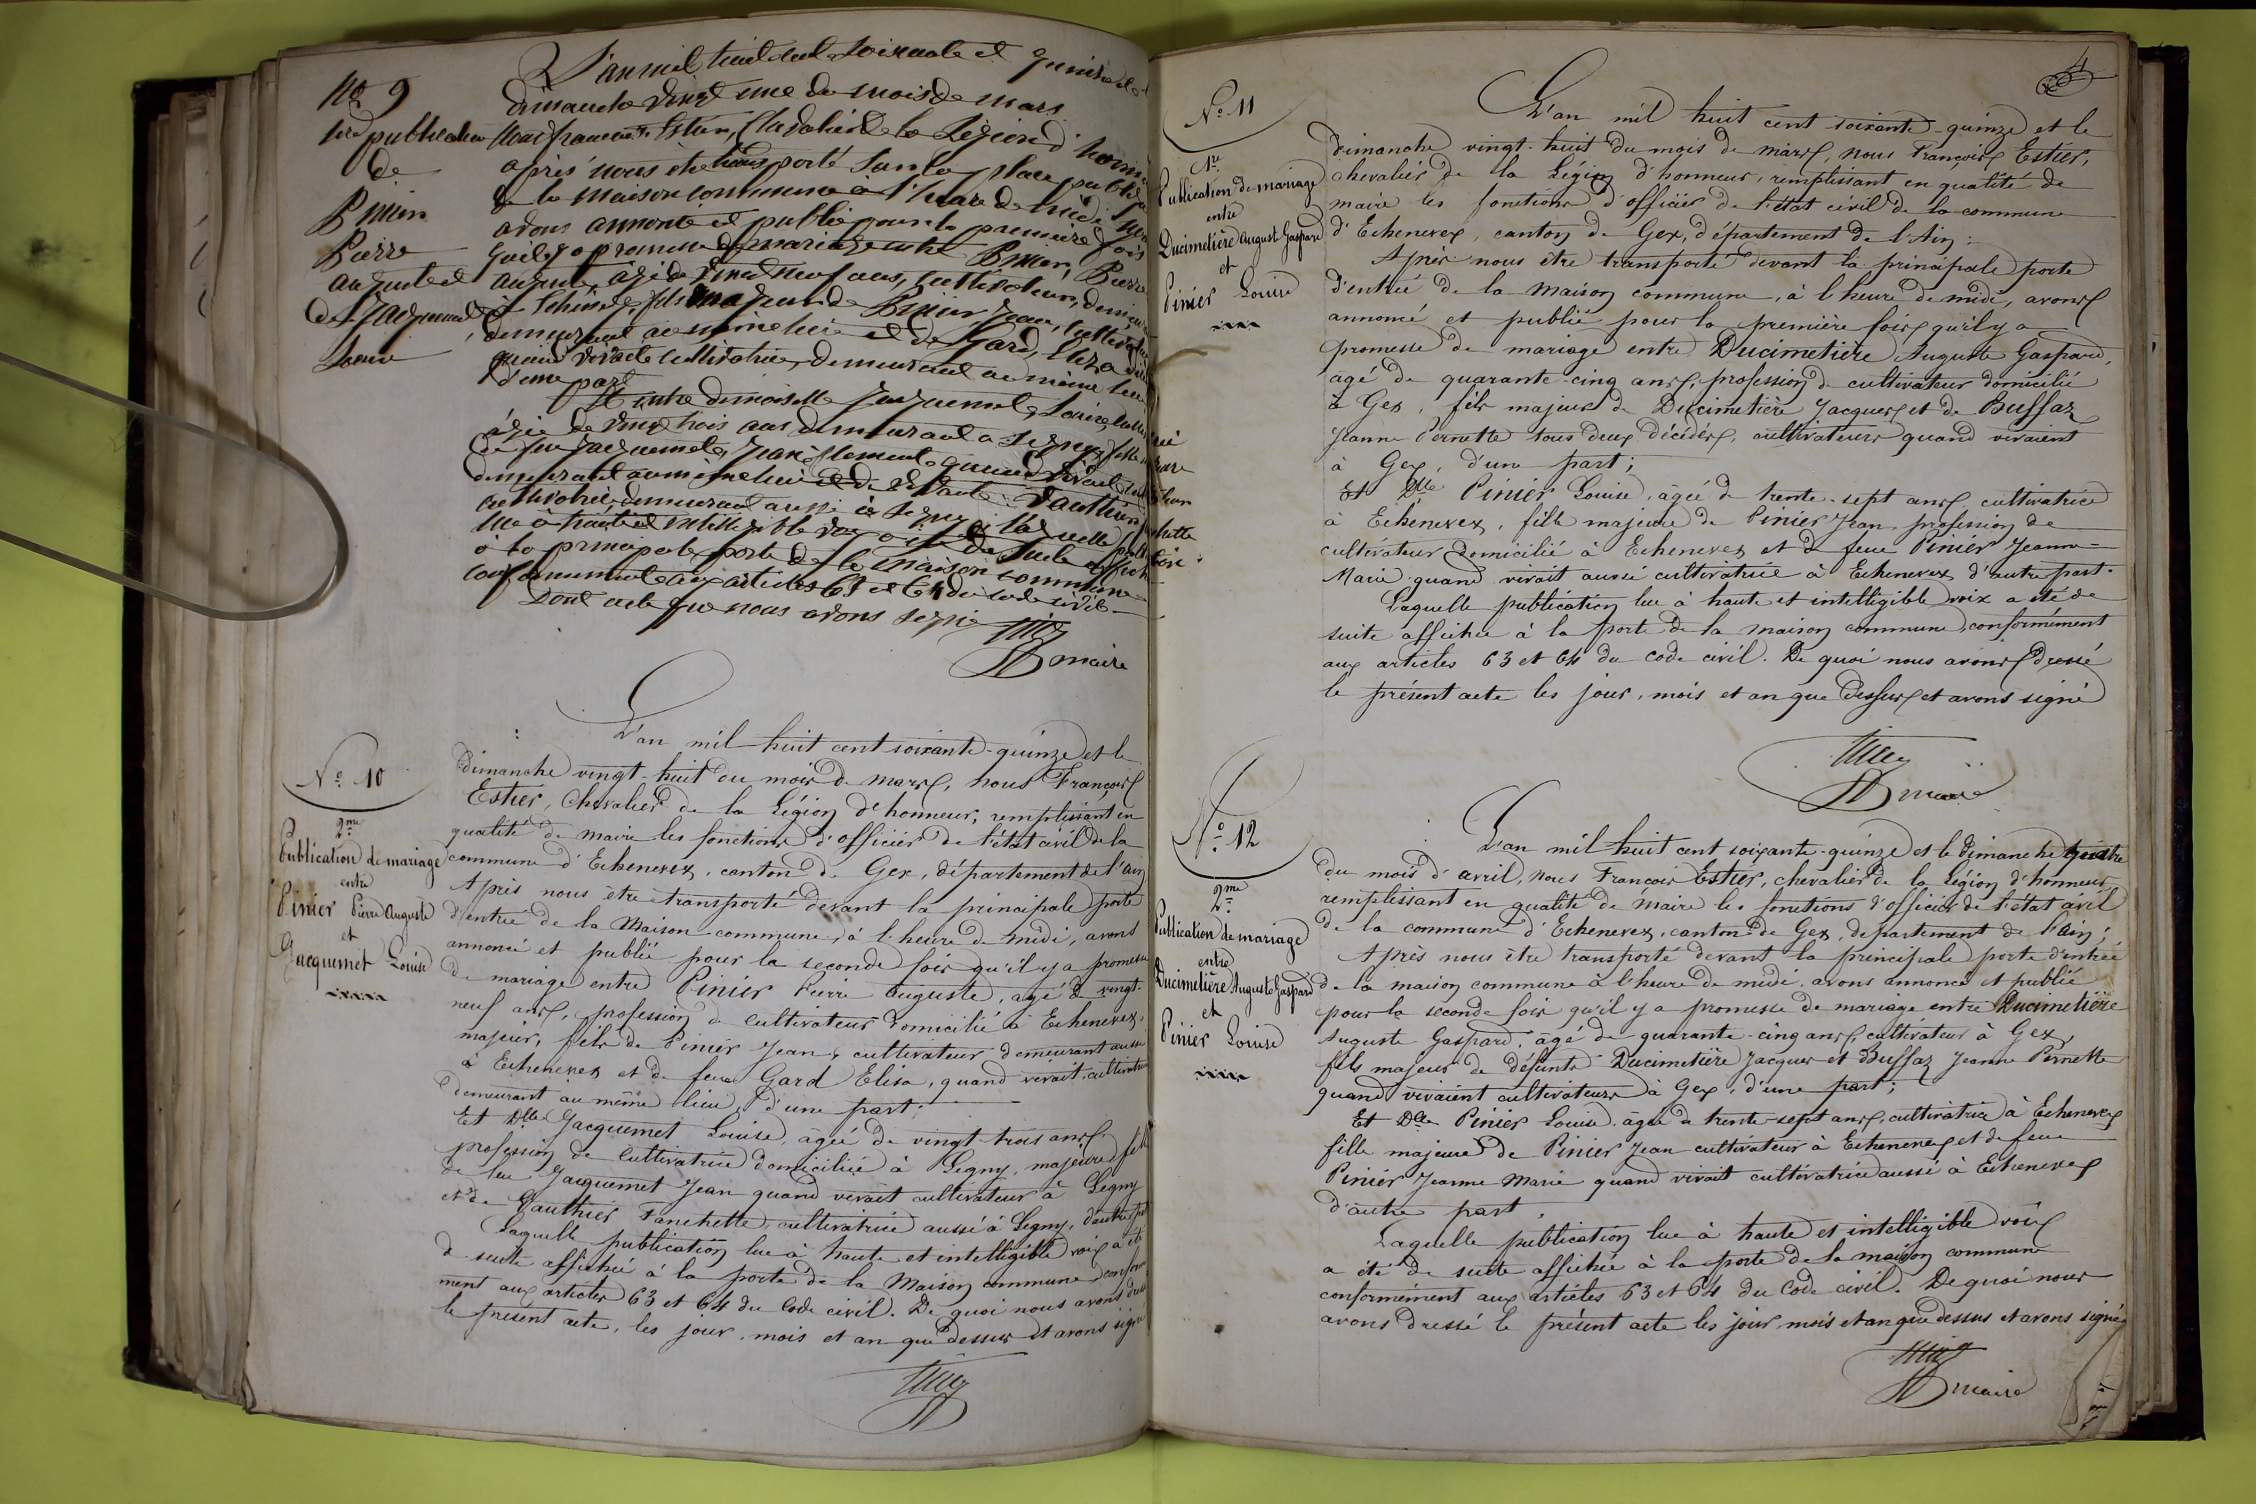 No 9
1ère publication
de
Pinier
Pierre
auguste et
de Jacquemet
Louise
L'an mil huit cent soixante et quinze et le
dimanche vingt une du mois de mars
nous françois Estier, Chevalier de la Légion d'honneur
après nous être transporté sur la place publique
de la maison commune à l'heure de midi
avons annoncé et publié pour la première fois
qu'il y a promesse de mariage entre Pinier, Pierre
auguste, âgé de vingt neuf ans, cultivateur,
fils majeur de Pinier Jean, cultivateur
demeurant au même lieu et de Gard, Eliza
quand vivait cultivatrice, demeurant au même lieu
d'une part
Et entre demoiselle Jacquemet, Louise,
âgée de vingt trois ans demeurant à Segny fille
de feu Jacquemet, Jean quand vivait
demeurant au même lieu et de
cultivatrice, demeurant aussi à Segny laquelle
lue à haute et intelligible voix a été de suite
à la principale porte de la maison commune
conformément aux articles 63 et 64 du code civil
Dont acte que nous avons signé
maire
N° 10
2me
Publication de mariage
entre
Pinier Pierre Auguste
et
Jacquemet Louise
L'an mil huit cent soixante-quinze et le
dimanche vingt-huit du mois de mars, nous François
Estier, Chevalier de la Légion d'honneur, remplissant en
qualité de maire les fonctions d'officier de l'état civil de la
commune d'Echenevex, canton de Gex, département de l'Ain
Après nous être transporté devant la principale porte
d'entrée de la Maison commune, à l'heure de midi, avons
annoncé et publié pour la seconde fois qu'il y a promesse
de mariage entre Pinier Pierre Auguste, âgé de vingt-
neuf ans, profession de cultivateur domicilié à Echenevex,
majeur, fils de Pinier Jean, cultivateur demeurant aussi
à Echenevex et de feue Gard Elisa, quand vivait cultivatrice
demeurant au même lieu, d'une part;
Et Dlle Jacquemet Louise, âgée de vingt-trois ans,
profession de cultivatrice domiciliée à Segny, majeure, fille
de feu Jacquemet Jean quand vivait cultivateur à Segny
et de Gauthier Fanchette, cultivatrice aussi à Segny, d'autre part
Laquelle publication lue à haute et intelligible voix a été
de suite affichée à la porte de la Maison commune, conformé
ment aux articles 63 et 64 du Code civil. De quoi nous avons dressé
le présent acte, les jour, mois et an que dessus et avons signé
4
N° 11
1re
Publication de mariage
entre
Ducimetière August Gaspard
et
Pinier Louise
L'an mil huit cent soixante-quinze et le
dimanche vingt-huit du mois de mars, nous François Estier,
chevalier de la Légion d'honneur, remplissant en qualité de
maire les fonctions d'officier de l'état civil de la commune
d'Echenevex, canton de Gex, département de l'Ain:
Après nous être transporté devant la principale porte
d'entrée de la Maison commune, à l'heure de midi, avons
annoncé et publié pour la première fois qu'il y a
promesse de mariage entre Ducimetière Auguste Gaspard,
âgé de quarante-cinq ans, profession de cultivateur domicilié
à Gex, fils majeur de Ducimetière Jacques et de Buffaz
Jeanne Pernette tous deux décédés, cultivateurs quand vivaient
à Gex, d'une part;
Et Dlle Pinier Louise, âgée de trente-sept ans, cultivatrice
à Echenevex, fille majeure de Pinier Jean, profession de
cultivateur domicilié à Echenevex et de feue Pinier Jeanne-
Marie quand vivait aussi cultivatrice à Echenevex, d'autre part.
Laquelle publication lue à haute et intelligible voix a été de
suite affichée à la porte de la maison commune, conformément
aux articles 63 et 64 du Code civil. De quoi nous avons dressé
le présent acte les jour, mois et an que dessus et avons signé
maire
N° 12
2me
Publication de mariage
entre
Ducimetière Auguste Gaspard
et
Pinier Louise
L'an mil huit cent soixante-quinze et le Dimanche quatre
du mois d'avril, nous François Estier, chevalier de la Légion d'honneur,
remplissant en qualité de maire les fonctions d'officier de l'état civil
de la commune d'Echenevex, canton de Gex, département de l'Ain;
Après nous être transporté devant la principale porte d'entrée
de la maison commune à l'heure de midi, avons annoncé et publié
pour la seconde fois qu'il y a promesse de mariage entre Ducimetière
Auguste Gaspard, âgé de quarante-cinq ans, cultivateur à Gex,
fils majeur de défunts Ducimetière Jacques et Buffaz Jeanne Pernette
quand vivaient cultivateurs à Gex, d'une part;
Et Dlle Pinier Louise, âgée de trente-sept ans, cultivatrice à Echenevex
fille majeure de Pinier Jean cultivateur à Echenevex et de feue
Pinier Jeanne Marie quand vivait cultivatrice aussi à Echenevex
d'autre part.
Laquelle publication lue à haute et intelligible voix
a été de suite affichée à la porte de la maison commune
conformément aux articles 63 et 64 du Code civil. De quoi nous
avons dressé le présent acte les jour, mois et an que dessus et avons signé
maire